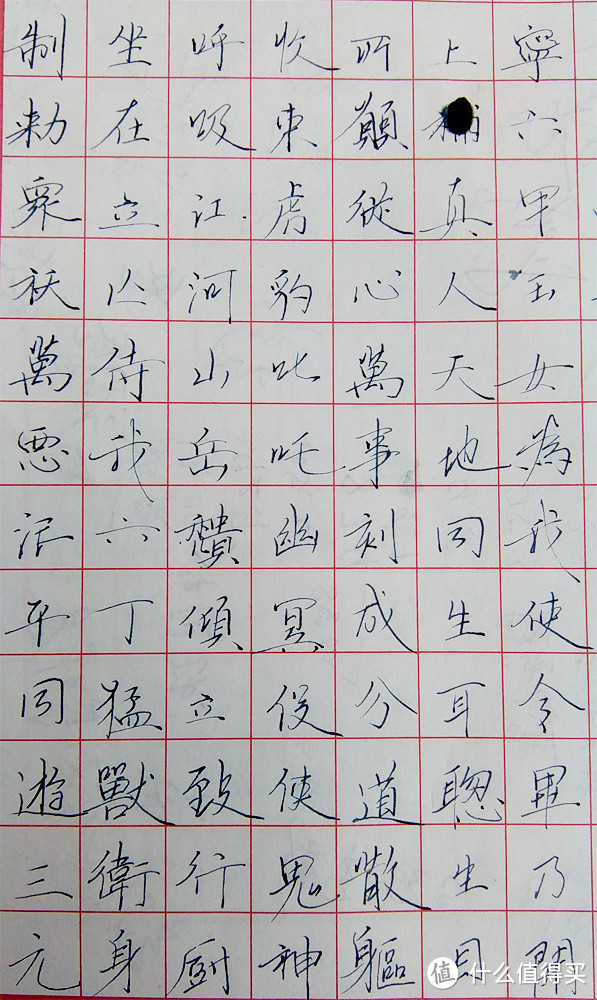 制敕眾祅萬惡泯平同遊三元
坐在立亾侍我六丁猛獸衛身
呼吸江河山岳頹傾立致行厨
收束虎豹叱吒幽冥役使鬼神
所願從心萬事刻成分道散軀
上真人天地同生耳聰生目
寧六甲玉女為我使令畢乃開
值 什么值得买